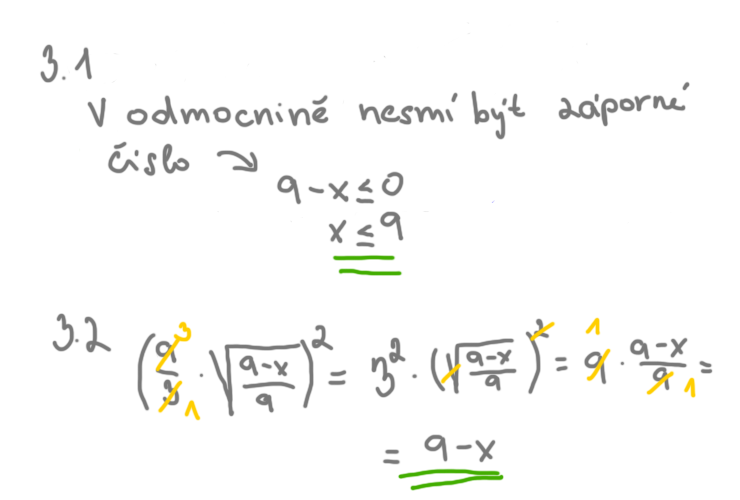 3.1
V odmocnině nesmí být záporné
číslo ↘
9-x≤0
x≤9
3.2 (9/3 · √((9-x)/9))² = 3² · (√((9-x)/9))² = 9 · (9-x)/9 =
= 9-x